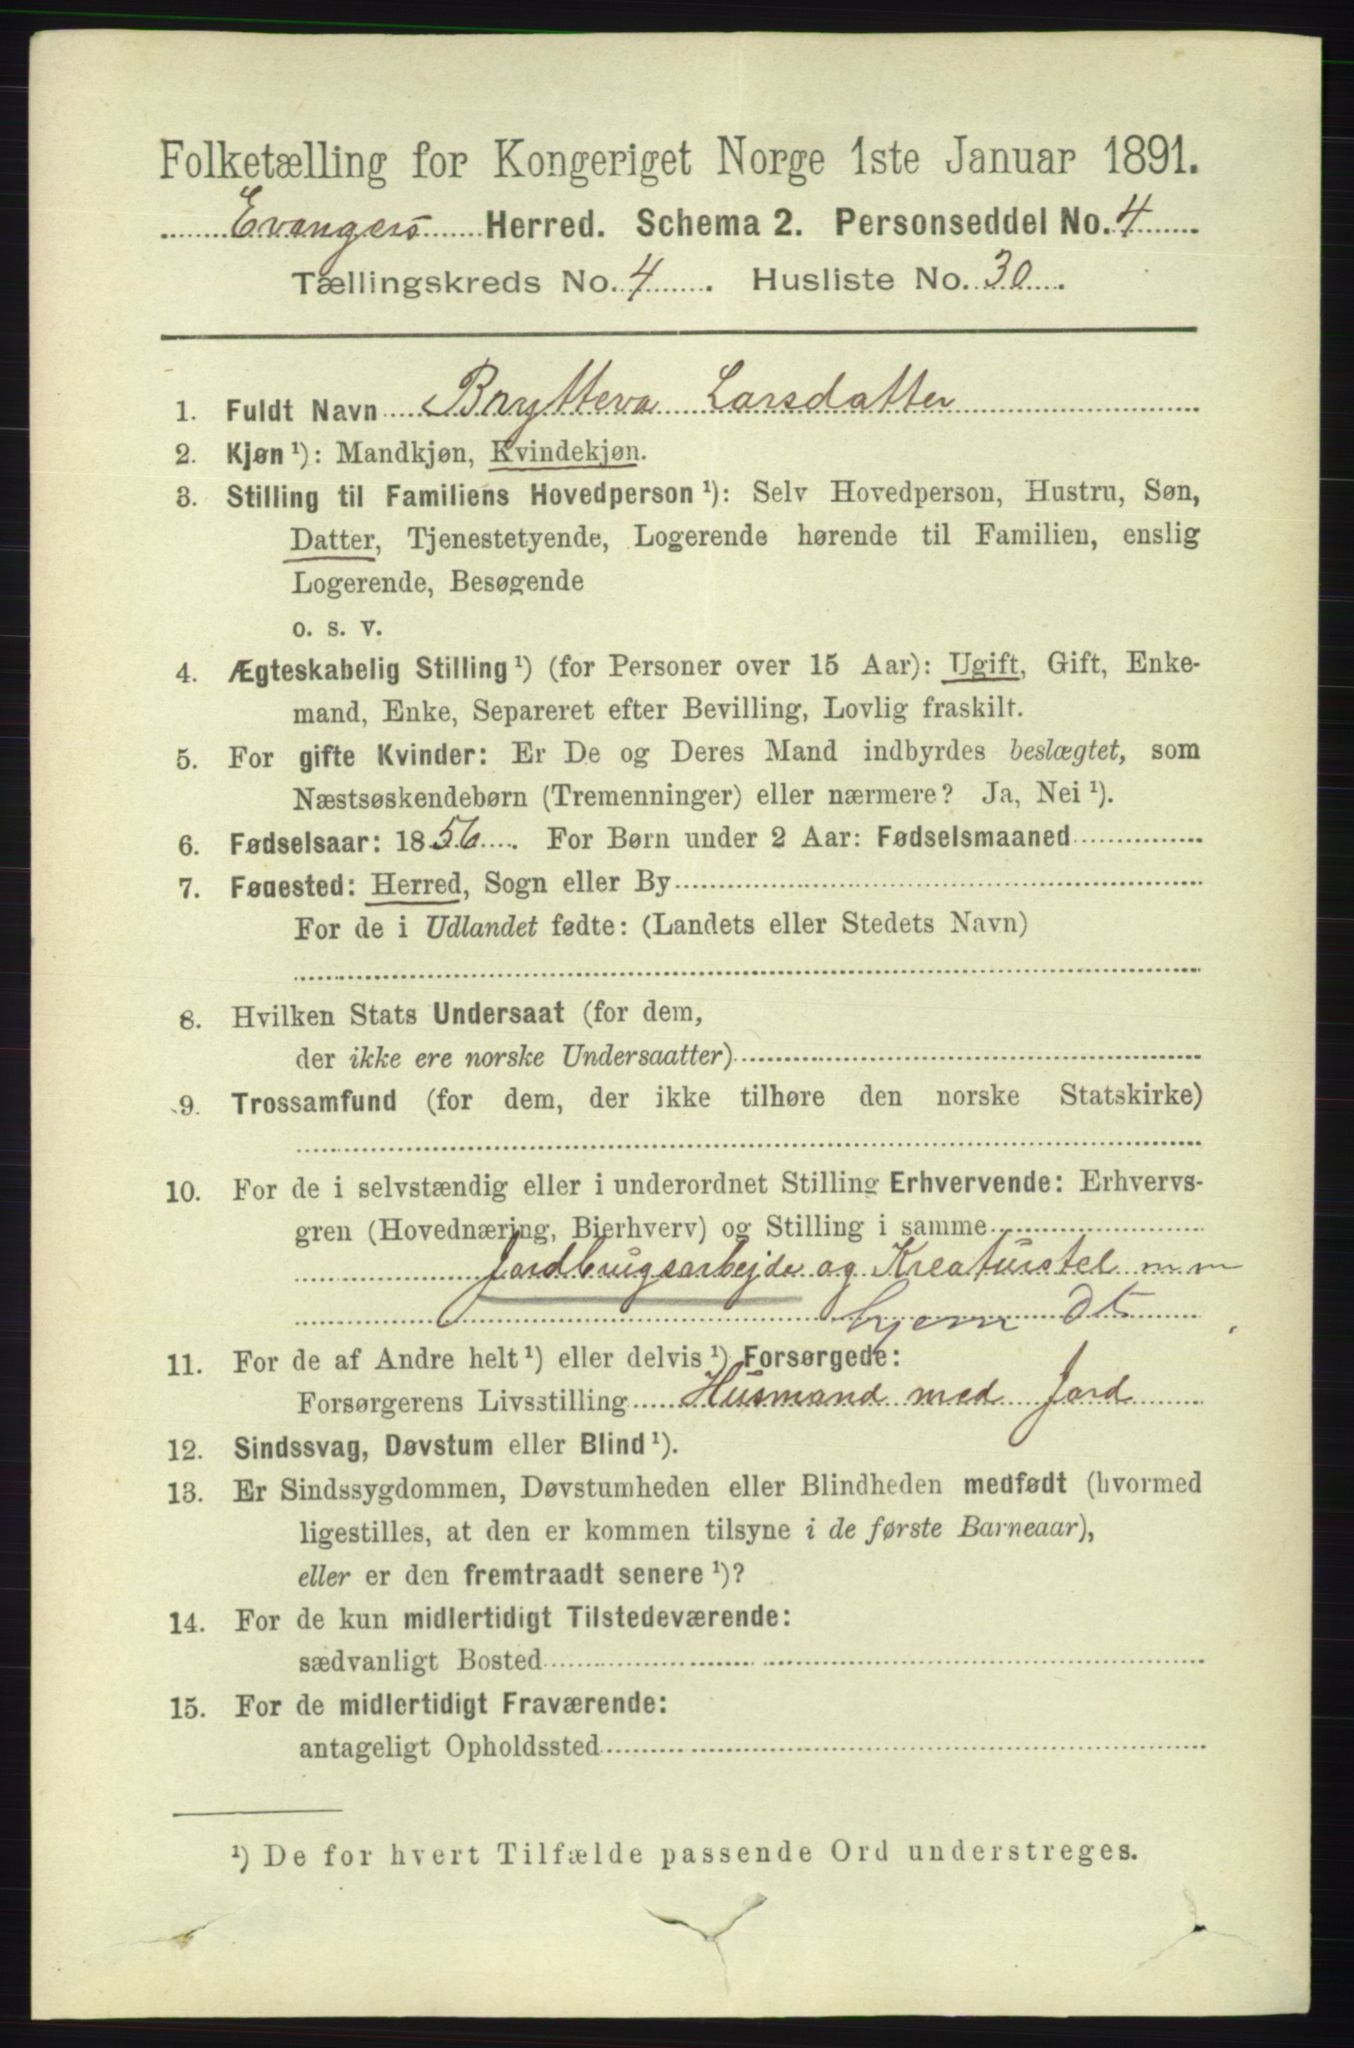 Folketælling for Kongeriget Norge 1ste Januar 1891.
Evangers Herred. Schema 2. Personseddel No. 4
Tællingskreds No. 4. Husliste No. 30.
1. Fuldt Navn Brytteva Larsdatter
2. Kjøn ¹): Mandkjøn, Kvindekjøn.
3. Stilling til Familiens Hovedperson ¹): Selv Hovedperson, Hustru, Søn,
Datter, Tjenestetyende, Logerende hørende til Familien, enslig
Logerende, Besøgende
o. s. v.
4. Ægteskabelig Stilling ¹) (for Personer over 15 Aar): Ugift, Gift, Enke-
mand, Enke, Separeret efter Bevilling, Lovlig fraskilt.
5. For gifte Kvinder: Er De og Deres Mand indbyrdes beslægtet, som
Næstsøskendebørn (Tremenninger) eller nærmere? Ja, Nei ¹).
6. Fødselsaar: 1856. For Børn under 2 Aar: Fødselsmaaned
7. Føuested: Herred, Sogn eller By
For de i Udlandet fødte: (Landets eller Stedets Navn)
8. Hvilken Stats Undersaat (for dem,
der ikke ere norske Undersaatter)
9. Trossamfund (for dem, der ikke tilhøre den norske Statskirke)
10. For de i selvstændig eller i underordnet Stilling Erhvervende: Erhvervs-
gren (Hovednæring, Bierhverv) og Stilling i samme
Jordbrugsarbejde og Kreaturstel m m
hjem dt
11. For de af Andre helt ¹) eller delvis ¹) Forsørgede:
Forsørgerens Livsstilling Husmand med Jord
12. Sindssvag, Døvstum eller Blind ¹).
13. Er Sindssygdommen, Døvstumheden eller Blindheden medfødt (hvormed
ligestilles, at den er kommen tilsyne i de første Barneaar),
eller er den fremtraadt senere ¹)?
14. For de kun midlertidigt Tilstedeværende:
sædvanligt Bosted
15. For de midlertidigt Fraværende:
antageligt Opholdssted
¹) De for hvert Tilfælde passende Ord understreges.